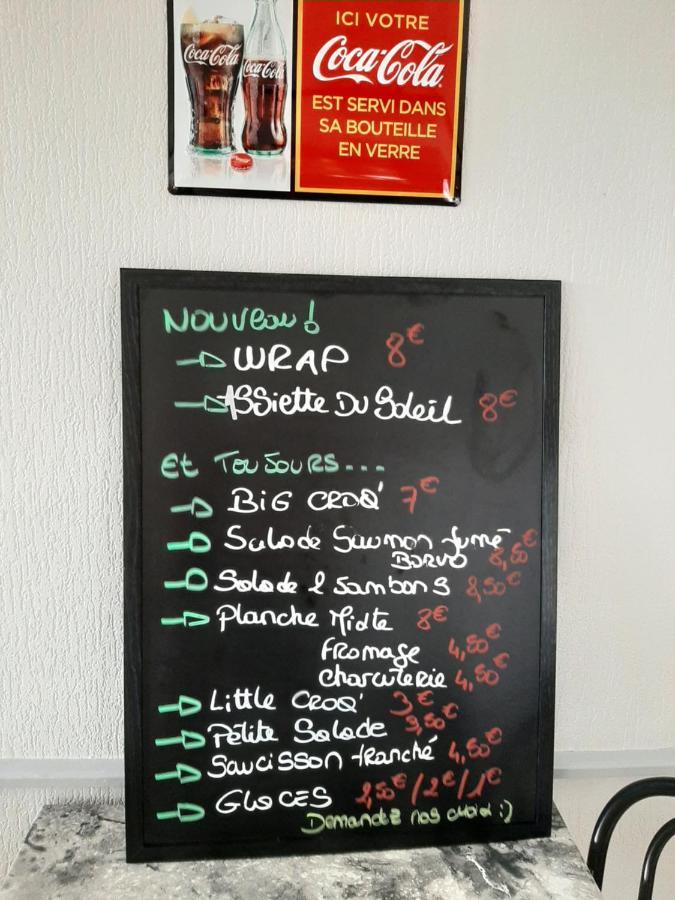 ICI VOTRE
Coca-Cola
EST SERVI DANS
SA BOUTEILLE
EN VERRE
Coca-Cola
Coca-Cola
Nouveau !
WRAP 8€
Assiette Du Soleil 8€
Et TOUJOURS...
BIG CROQ' 7€
Salade Saumon fumé
BORVO 8,50€
Salade 2 Jambons 8,50€
Planche Mixte 8€
Fromage 4,50€
charcuterie 4,50€
Little CROQ' 3€
Petite Salade 3,50€
Saucisson tranché 4,50€
GLACES 2,50€/2€/1€
Demandez nos choix :)